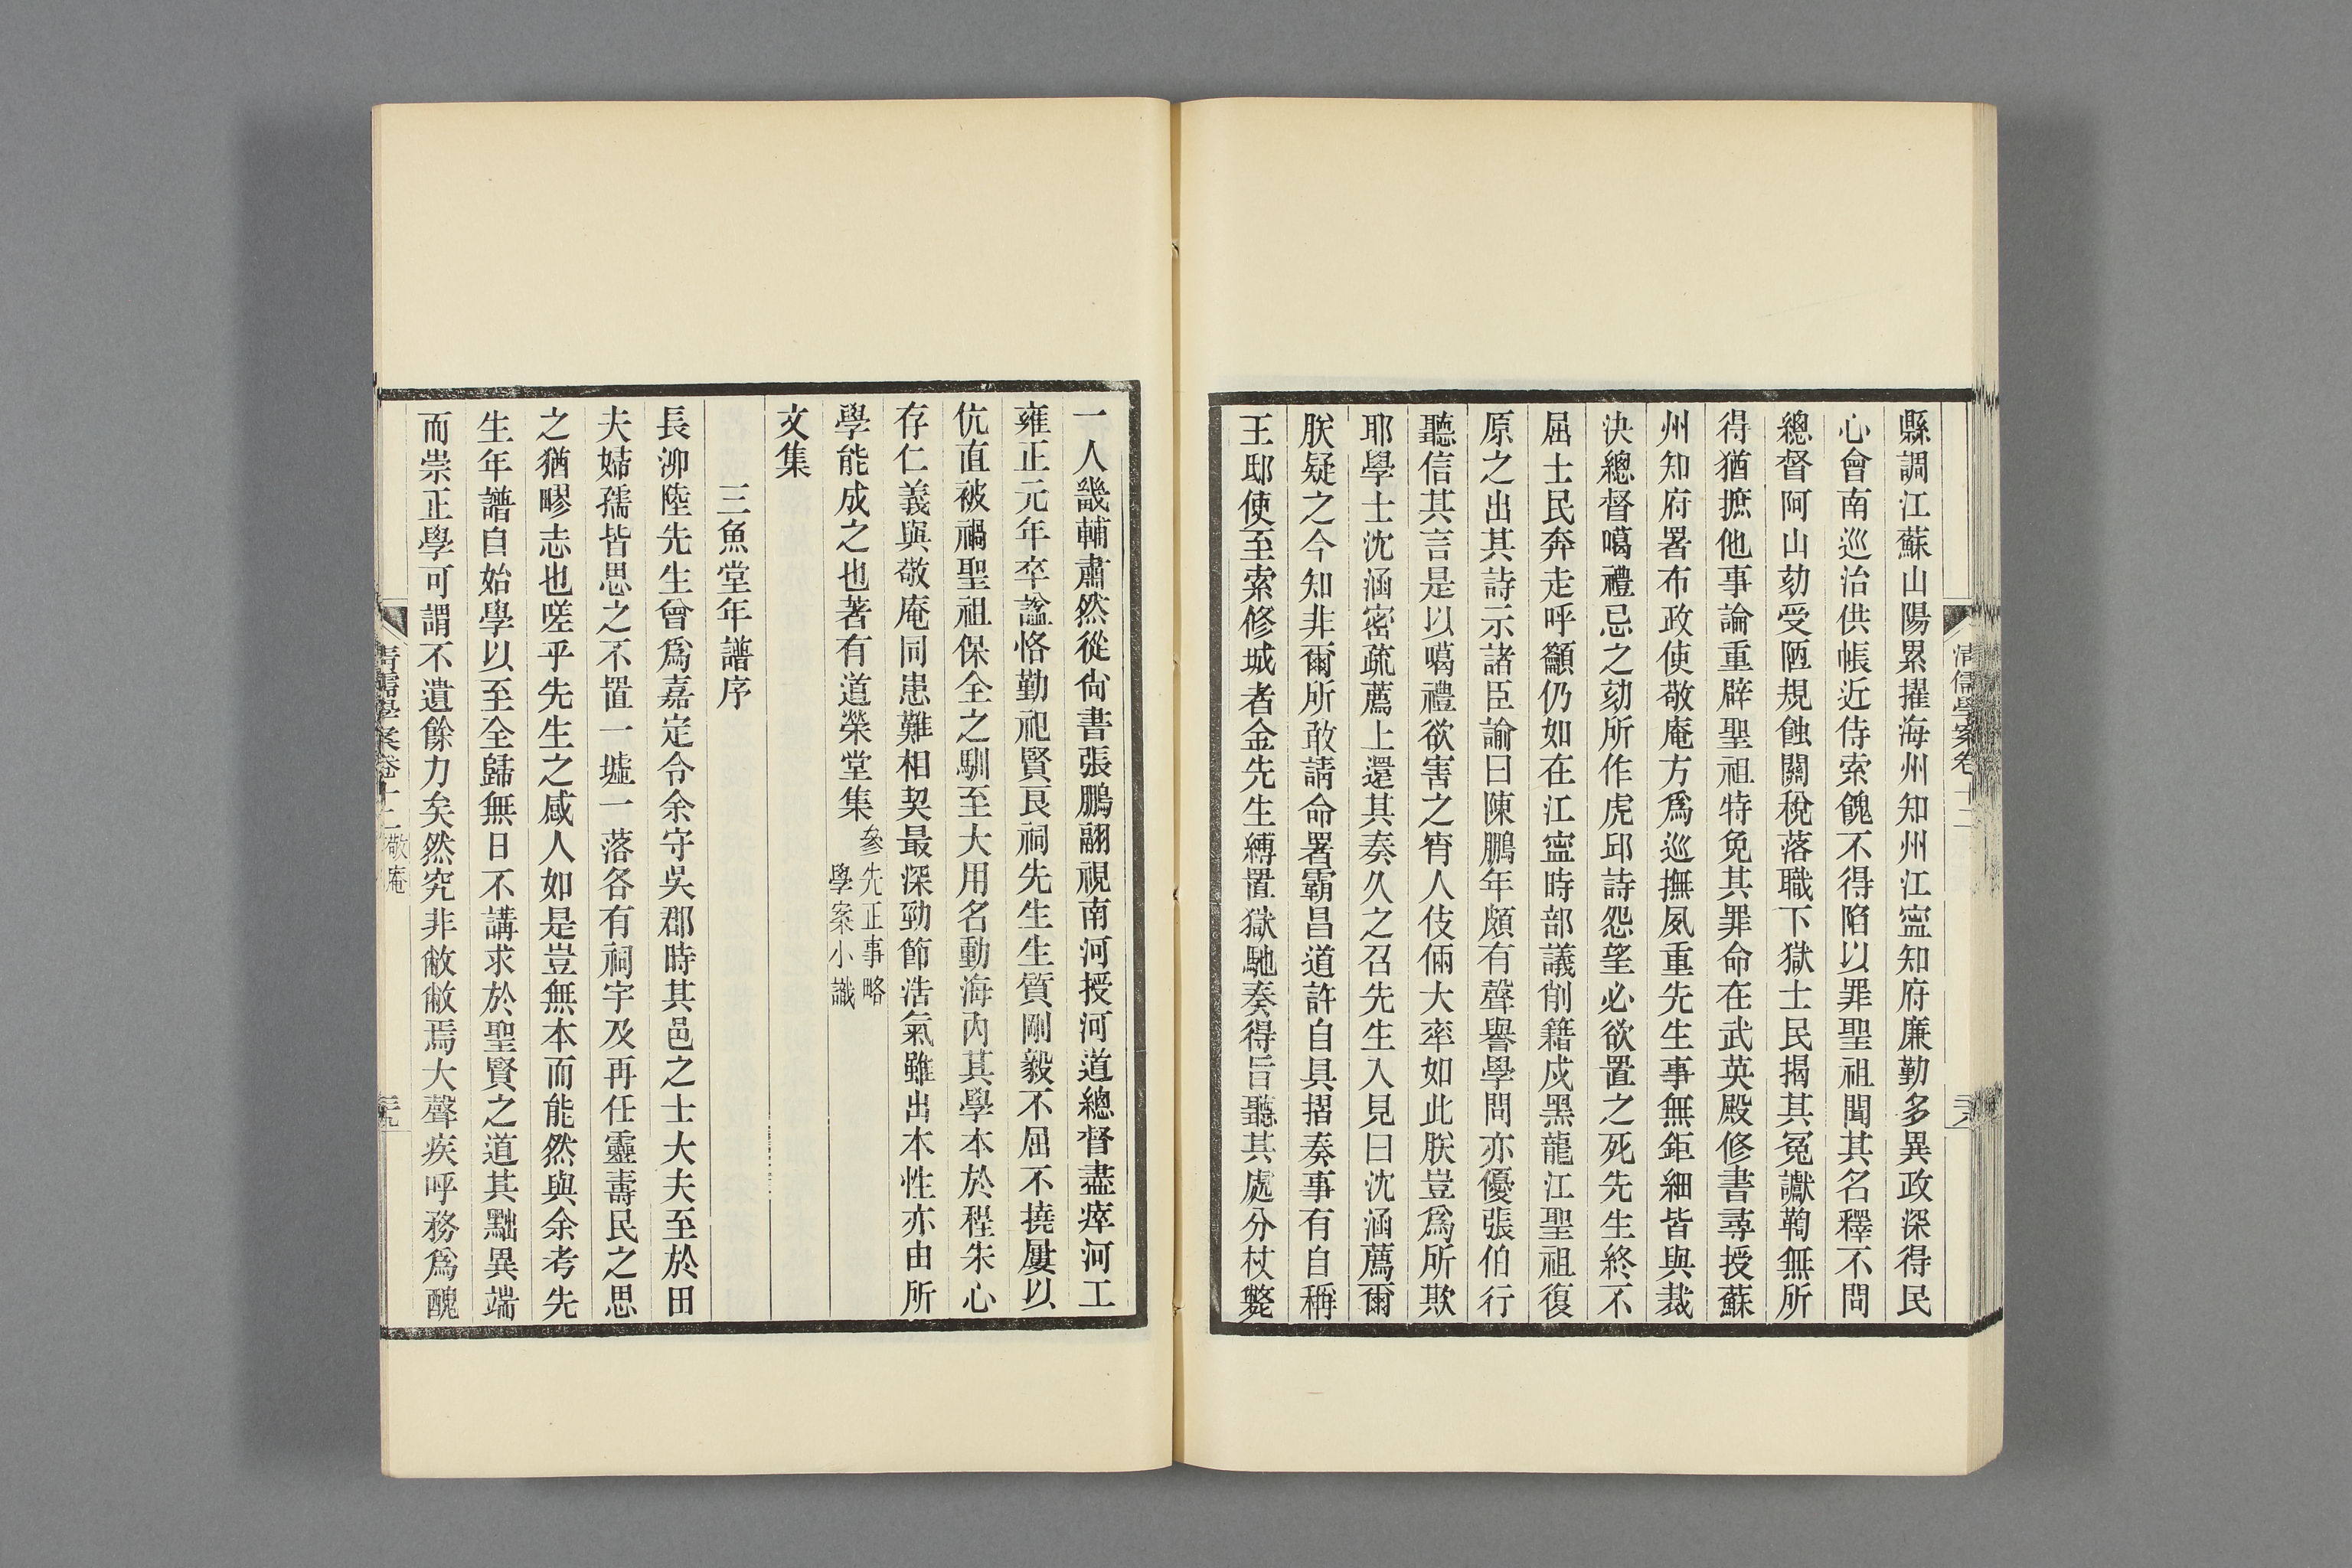 清儒學案卷十二
三八
縣調江蘇山陽累擢海州知州江寧知府廉勤多異政深得民
心會南巡治供帳近侍索餽不得陷以罪聖祖聞其名釋不問
總督阿山劾受陋規蝕關稅落職下獄士民揭其冤讞鞫無所
得猶摭他事論重辟聖祖特免其罪命在武英殿修書尋授蘇
州知府署布政使敬庵方爲巡撫夙重先生事無鉅細皆與裁
決總督噶禮忌之劾所作虎邱詩怨望必欲置之死先生終不
屈士民奔走呼籲仍如在江寧時部議削籍戍黑龍江聖祖復
原之出其詩示諸臣諭曰陳鵬年頗有聲譽學問亦優張伯行
聽信其言是以噶禮欲害之宵人伎倆大率如此朕豈爲所欺
耶學士沈涵密疏薦上還其奏久之召先生入見曰沈涵薦爾
朕疑之今知非爾所敢請命署霸昌道許自具摺奏事有自稱
王邸使至索修城者金先生縛置獄馳奏得旨聽其處分杖斃
一人畿輔肅然從尙書張鵬翮視南河授河道總督盡瘁河工
雍正元年卒諡恪勤祀賢良祠先生生質剛毅不屈不撓屢以
伉直被禍聖祖保全之馴至大用名動海內其學本於程朱心
存仁義與敬庵同患難相契最深勁節浩氣雖出本性亦由所
學能成之也著有道榮堂集參先正事略
學案小識
文集
三魚堂年譜序
長泖陸先生曾爲嘉定令余守吳郡時其邑之士大夫至於田
夫婦孺皆思之不置一墟一落各有祠宇及再任靈壽民之思
之猶疁志也嗟乎先生之感人如是豈無本而能然與余考先
生年譜自始學以至全歸無日不講求於聖賢之道其黜異端
而崇正學可謂不遺餘力矣然究非敝敝焉大聲疾呼務爲醜
清儒學案卷十二 敬庵
三九